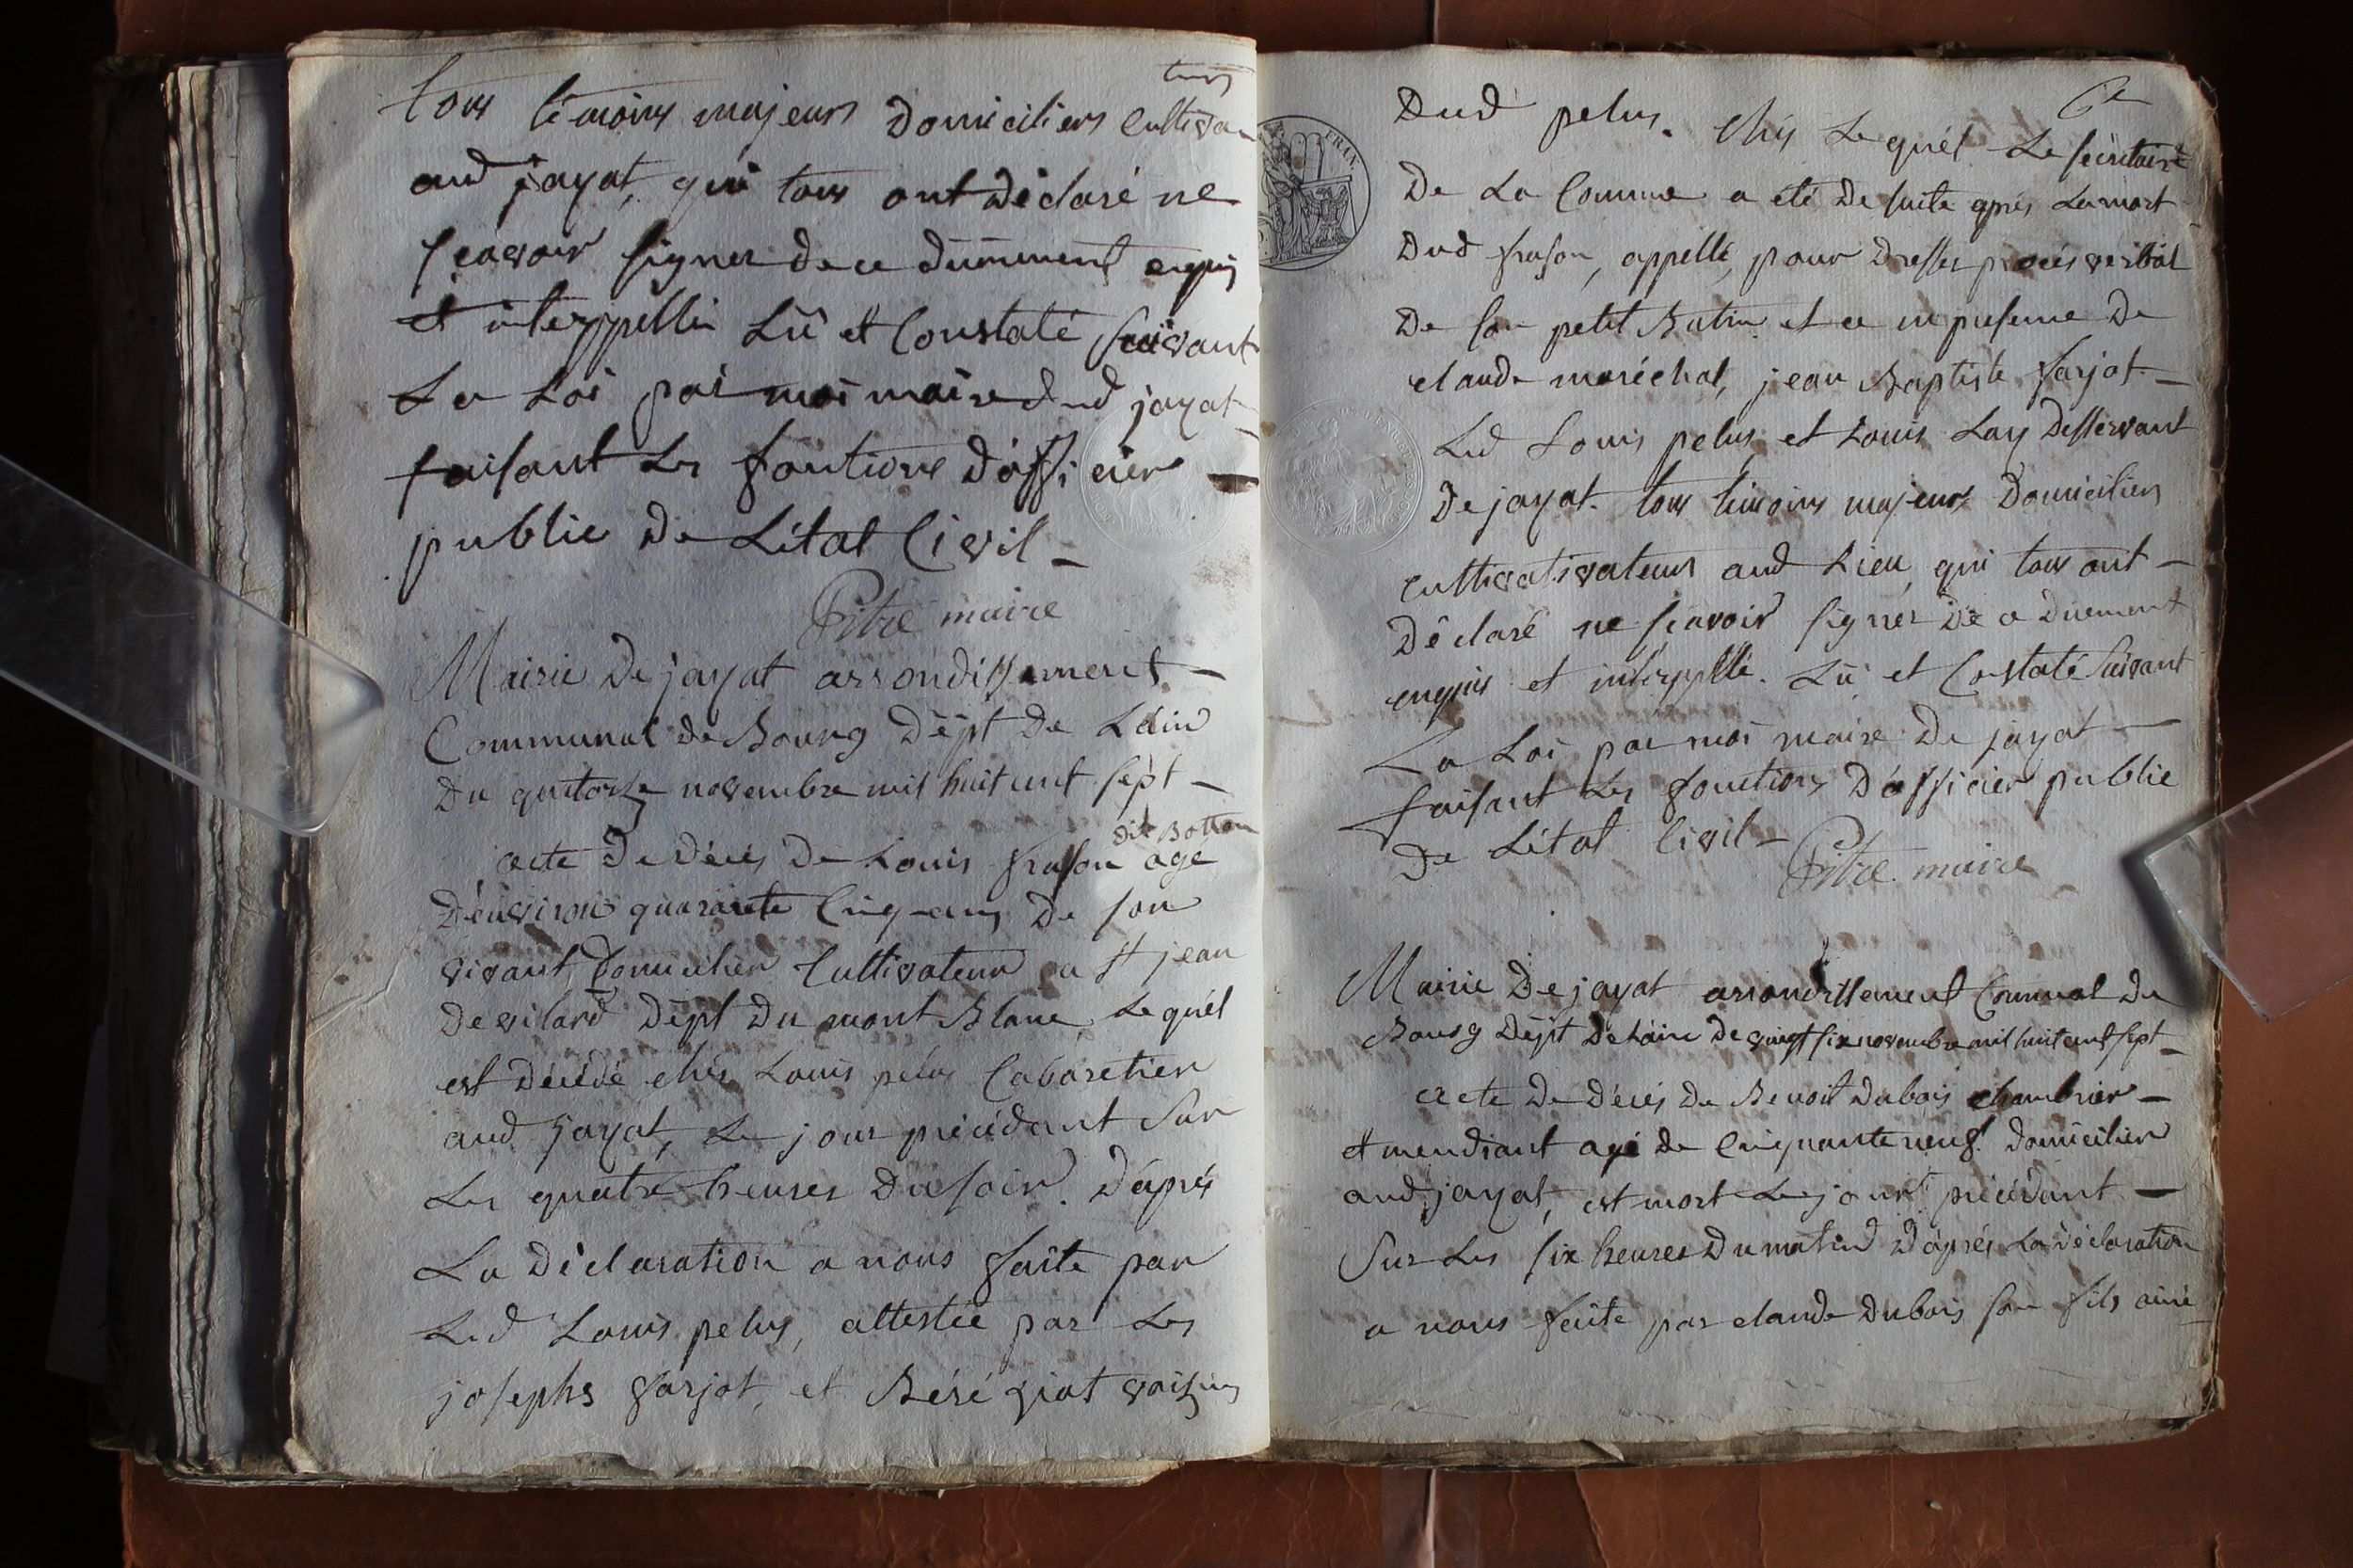 tous témoins majeurs Domiciliers Cultiva
teurs
aud jayat, qui tous ont Déclaré ne
scavoir signer de ce dûmment enquis
et interppellés Lû et Constaté suivant
La Loi par moi maire dud jayat
faisant Les fontions D'officier
public De L'état Civil
Pitre maire
Mairie De jayat arrondissement
Communal de Bourg Dépt De L'ain
Du quatorze novembre mil huit cent sept
dit Botton
acte De Décés De Louis frason agé
D'environ quarante Cinq ans De son
vivant Domicilier Cultivateur a St jean
De vilard Dépt Du mont Blanc Le quél
est Décédé chés Louis pelus Cabaretier
aud jayat, Le jour précédant Sur
Les quatre heures Du soir. D'aprés
La Déclaration a nous faite par
Led Louis pelus, attestée par Les
josephs farjot, et Béréziat voisins
6e
Dud pelus. chés Le quél Le secrétaire
De La Commune a été De suite aprés La mort
Dud frason, appellé, pour Dresser procés verbal
De son petit Butin et ce en presence De
claude maréchal, jean Baptiste farjot
Led Louis pelus et Louis Lay Desservant
De jayat. tous témoins majeurs Domiciliers
cultivativateurs aud Lieu, qui tous ont
Déclaré ne scavoir signér De ce duement
enquis et interppellé. Lû et Constaté suivant
La Loi par moi maire De jayat
faisant Les fonctions D'officier public
De L'état Civil
Pitre maire
Mairie De jayat arrondissement Communal De
Bourg Dépt De L'ain De vingt six novembre mil huit cent sept
acte De Décés De Benoit Dubois chambrier
et mendiant agé de Cinquante neuf Domicilier
aud jayat, est mort Le jour précédant
Sur Les six heures Du matin D'aprés La déclaration
a nous faite par claude Dubois son fils ainé